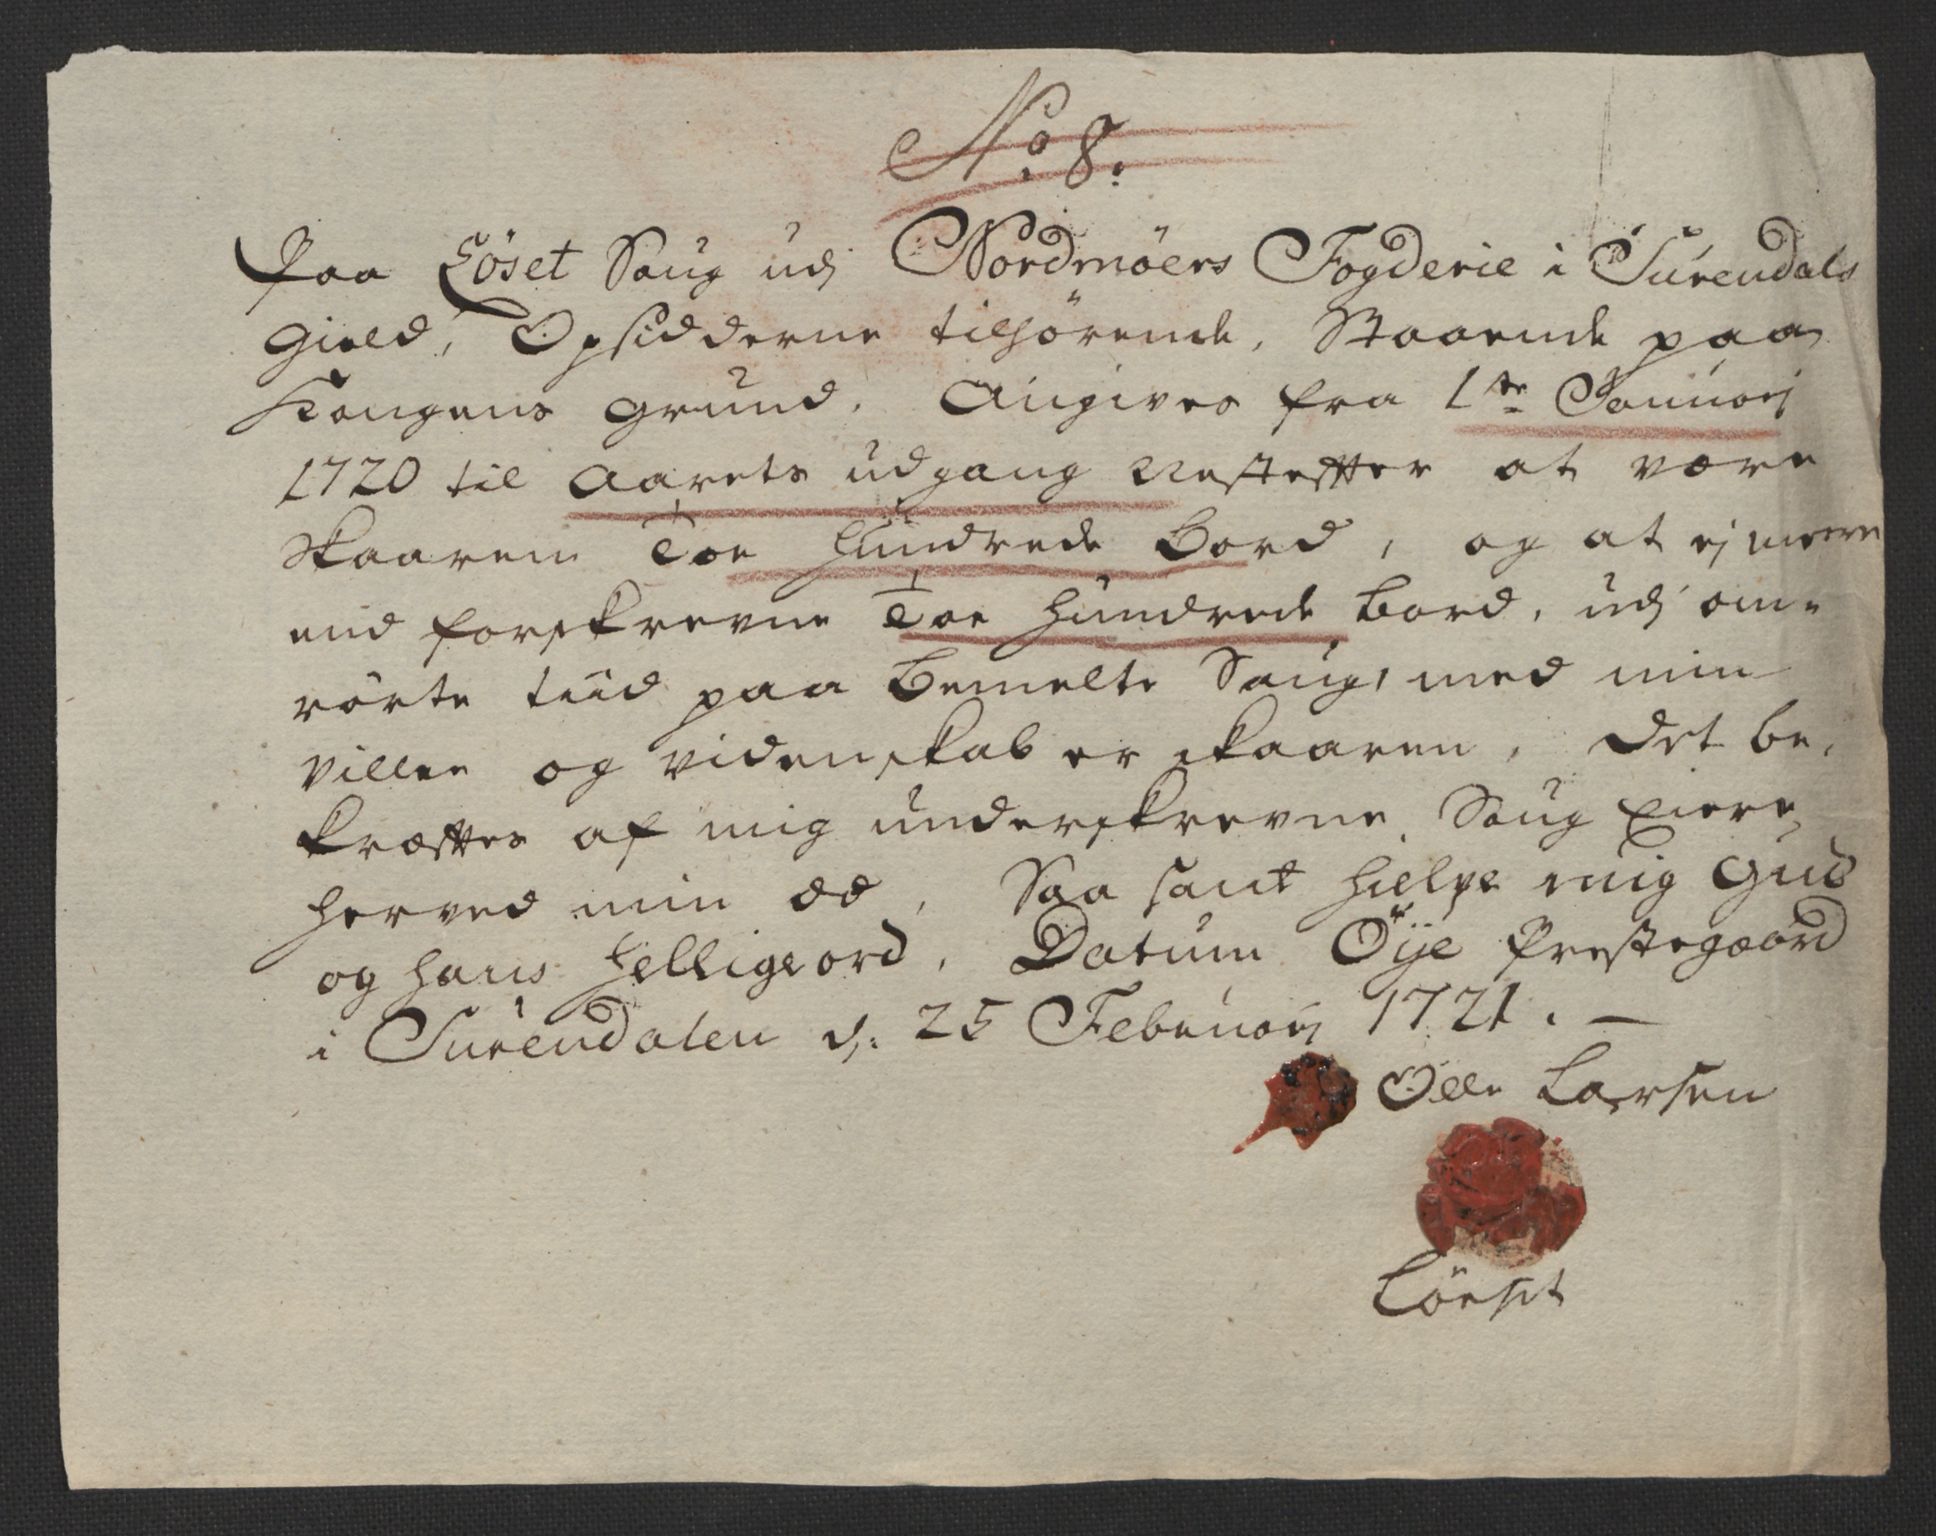 No: 8.
Paa Löset Saug udj Nordmöers Fogderie i Surendals
Gield, Opsidderne tilhörende, Staaende paa
Kongens grund. Angives fra 1te Januarj
1720 til Aarets udgang Nestefter at være
skaaren Toe Hundrede Bord, og at ej meere
end forskrevne Toe Hundrede Bord, udj om-
rörte tiid paa Bemelte Saug, med min
villee og videnskab er skaaren, Det be-
kræfftes af mig underskrevne Saug Eiere,
herved min æd, Saa sant hielpe mig Gud
og hans Helligeord, Datum Öye Prestegaard
i Surendalen d: 25 Februarj 1721. —
Olle Larsen
Löeset